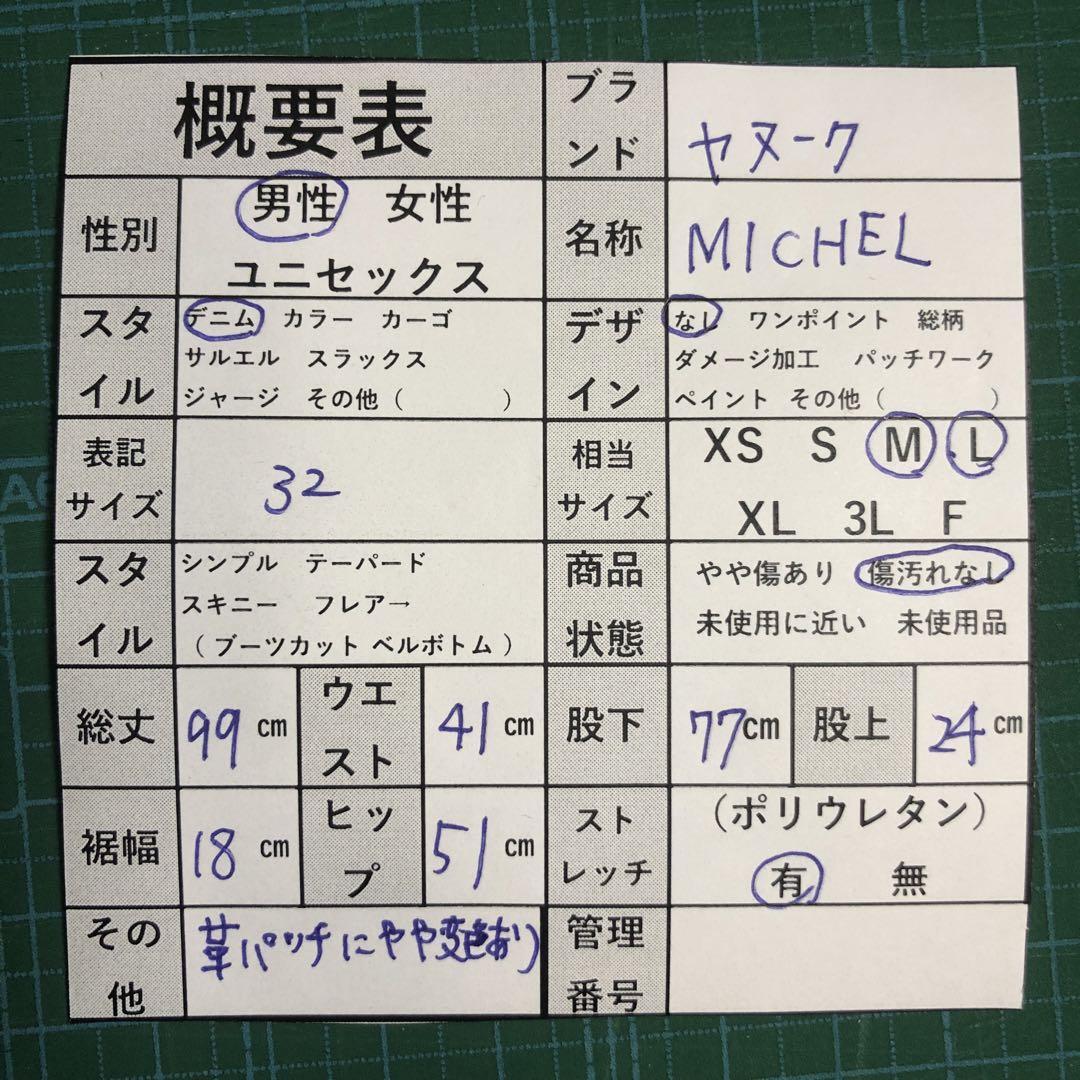 概要表
ブラ
ンド
ヤヌーク
性別
男性 女性
ユニセックス
名称
MICHEL
スタ
イル
デニム カラー カーゴ
サルエル スラックス
ジャージ その他（ ）
デザ
イン
なし ワンポイント 総柄
ダメージ加工 パッチワーク
ペイント その他（ ）
表記
サイズ
32
相当
サイズ
XS S M L
XL 3L F
スタ
イル
シンプル テーパード
スキニー フレア→
（ブーツカット ベルボトム）
商品
状態
やや傷あり 傷汚れなし
未使用に近い 未使用品
総丈
99 cm
ウエ
スト
41 cm
股下
77cm
股上
24 cm
裾幅
18 cm
ヒッ
プ
51 cm
スト
レッチ
（ポリウレタン）
有 無
その
他
革パッチにやや変色あり
管理
番号